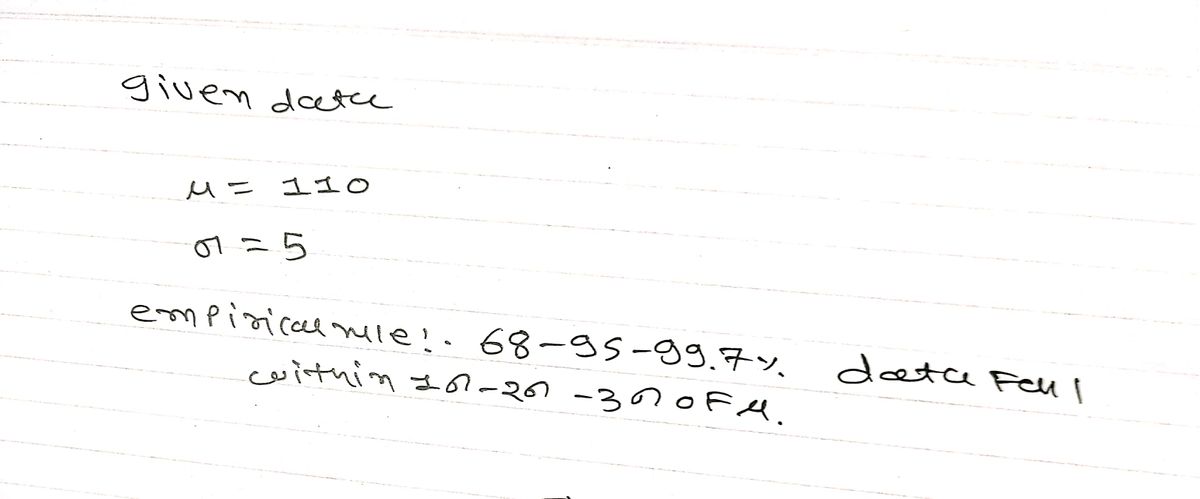 given data
μ = 110
σ = 5
empirical rule:- 68-95-99.7% data Fall
within 1σ-2σ-3σ oF μ.